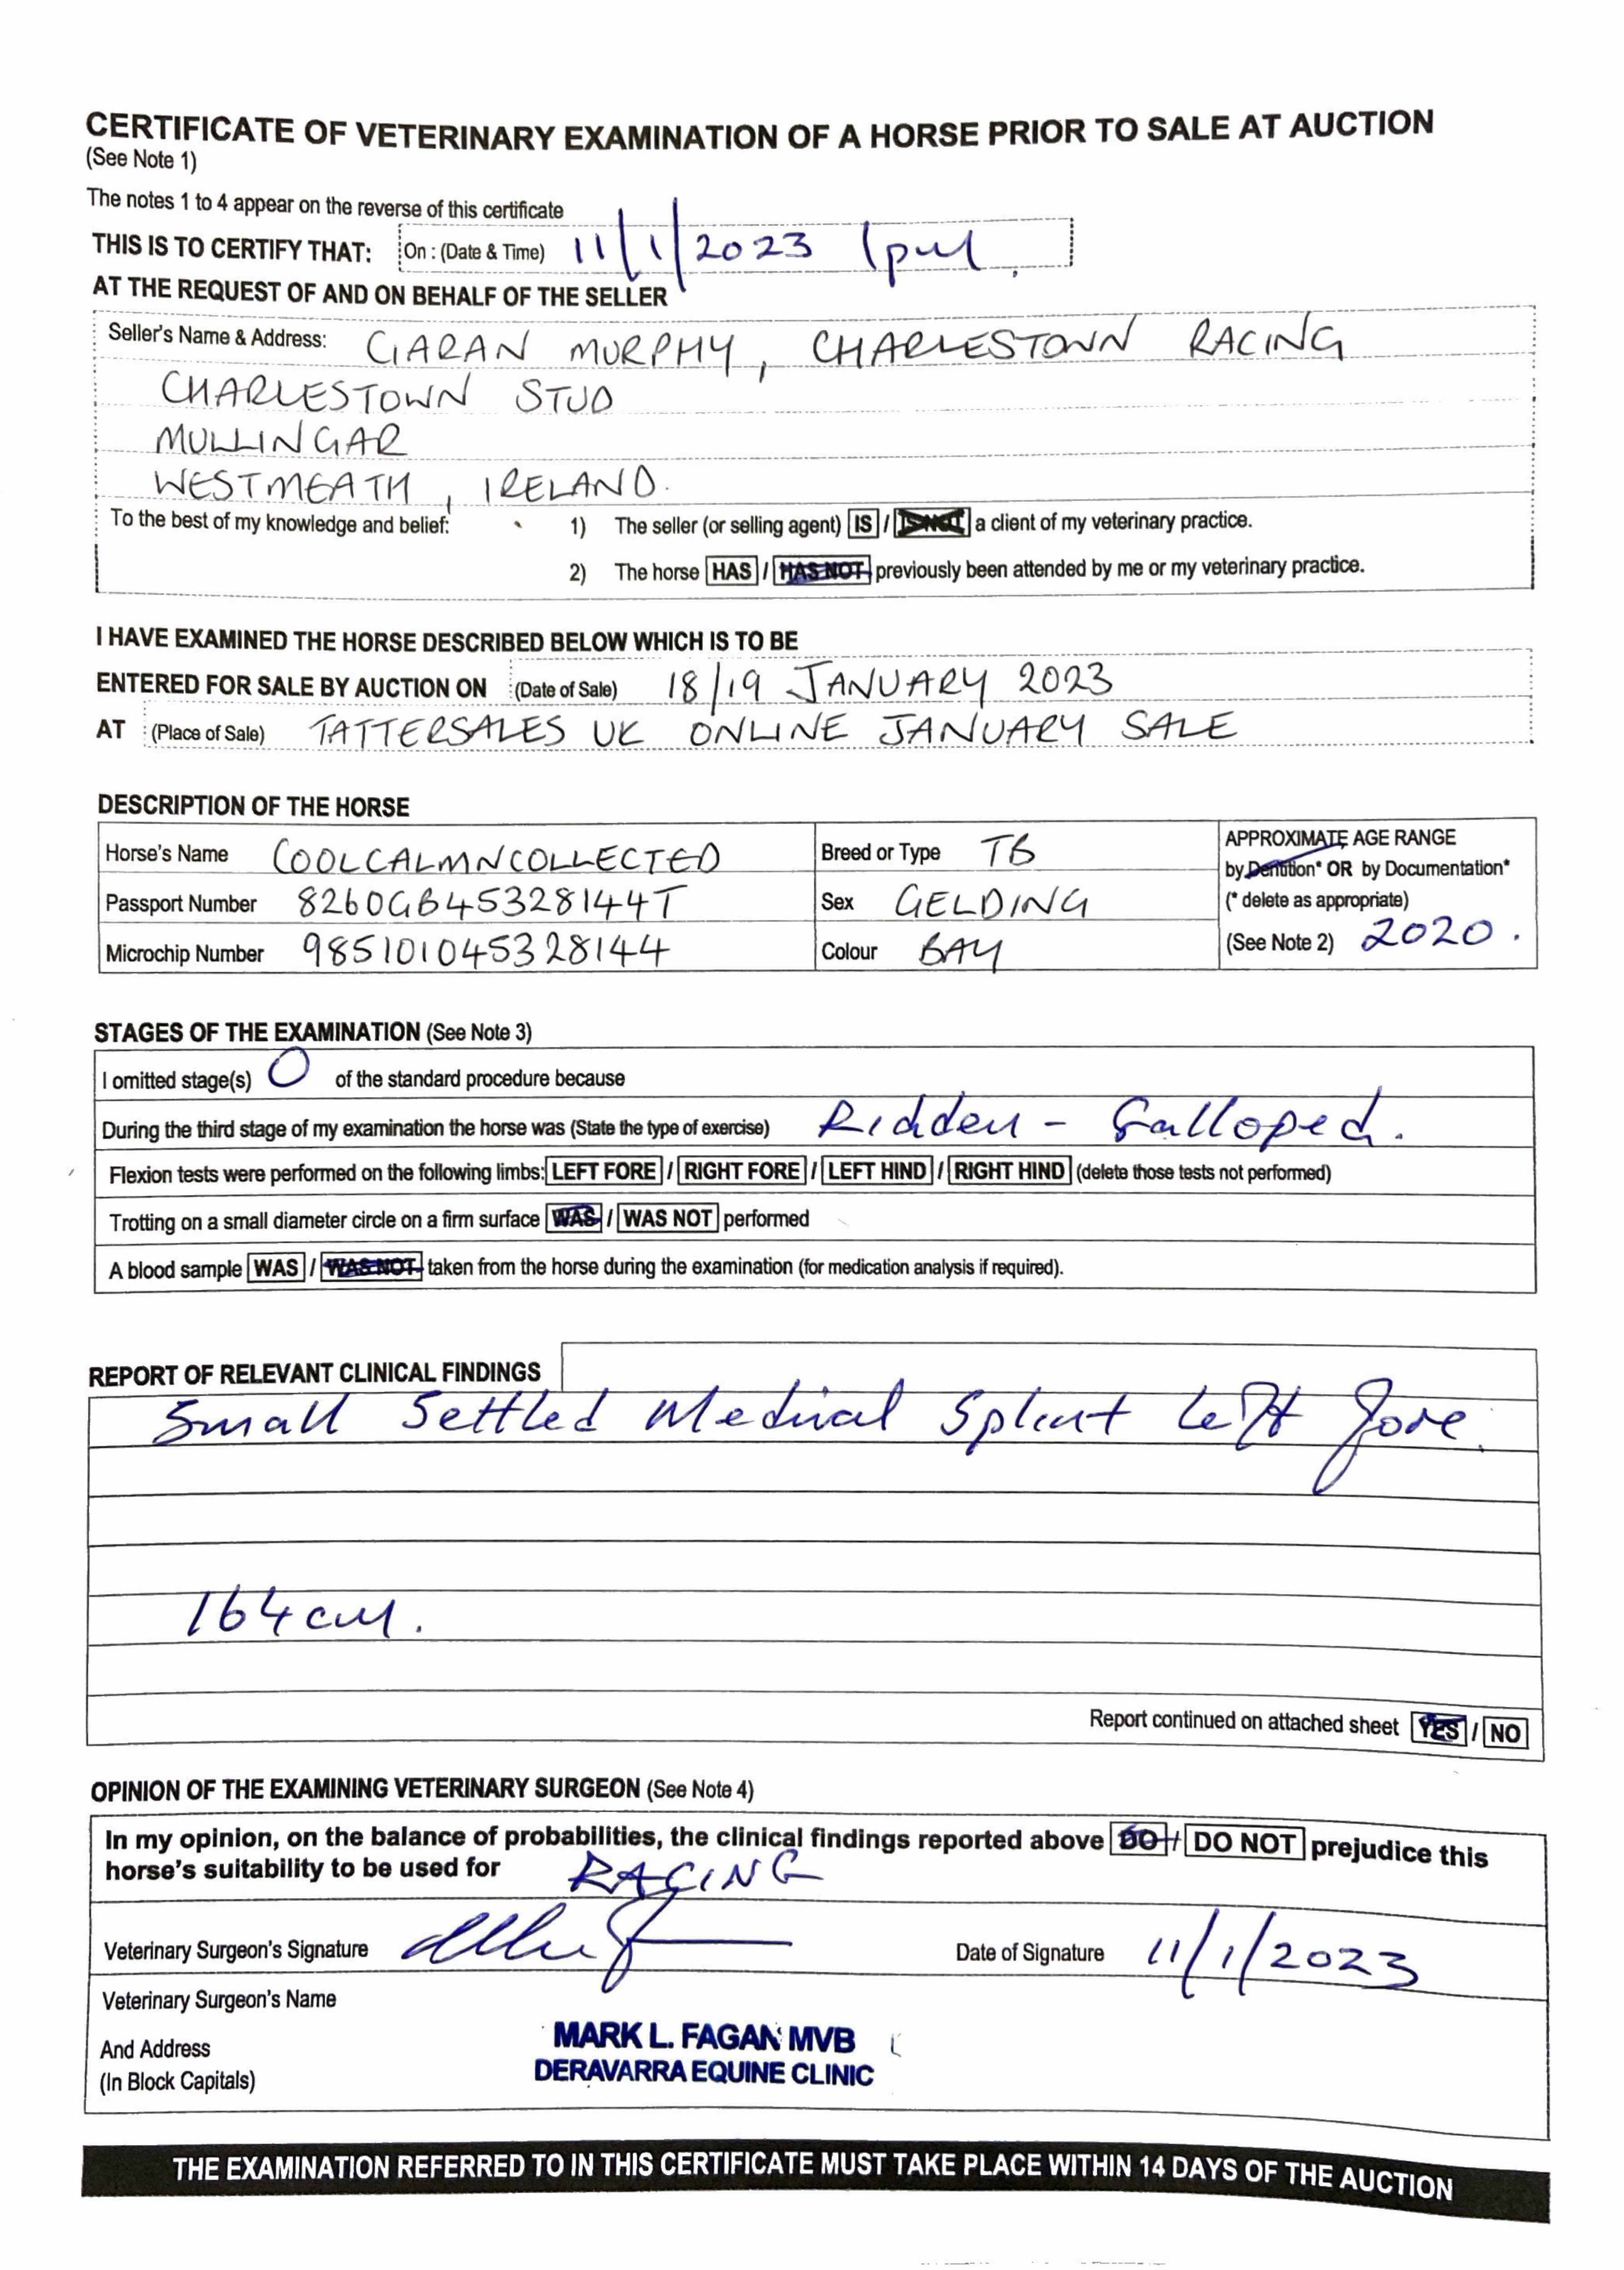 CERTIFICATE OF VETERINARY EXAMINATION OF A HORSE PRIOR TO SALE AT AUCTION
(See Note 1)
The notes 1 to 4 appear on the reverse of this certificate
THIS IS TO CERTIFY THAT: On : (Date & Time) 11/1/2023 1pm.
AT THE REQUEST OF AND ON BEHALF OF THE SELLER
Seller's Name & Address: CIARAN MURPHY, CHARLESTOWN RACING
CHARLESTOWN STUD
MULLINGAR
WESTMEATH, IRELAND.
To the best of my knowledge and belief: 1) The seller (or selling agent) IS / IS NOT a client of my veterinary practice.
2) The horse HAS / HAS NOT previously been attended by me or my veterinary practice.
I HAVE EXAMINED THE HORSE DESCRIBED BELOW WHICH IS TO BE
ENTERED FOR SALE BY AUCTION ON (Date of Sale) 18/19 JANUARY 2023
AT (Place of Sale) TATTERSALES UK ONLINE JANUARY SALE
DESCRIPTION OF THE HORSE
Horse's Name COOLCALMNCOLLECTED
Passport Number 8260GB45328144T
Microchip Number 985101045328144
Breed or Type TB
Sex GELDING
Colour BAY
APPROXIMATE AGE RANGE
by Dentition* OR by Documentation*
(* delete as appropriate)
(See Note 2) 2020.
STAGES OF THE EXAMINATION (See Note 3)
I omitted stage(s) 0 of the standard procedure because
During the third stage of my examination the horse was (State the type of exercise) Ridden - Galloped.
Flexion tests were performed on the following limbs: LEFT FORE / RIGHT FORE / LEFT HIND / RIGHT HIND (delete those tests not performed)
Trotting on a small diameter circle on a firm surface WAS / WAS NOT performed
A blood sample WAS / WAS NOT taken from the horse during the examination (for medication analysis if required).
REPORT OF RELEVANT CLINICAL FINDINGS
Small Settled Medial Splint Left Fore.
164cm.
Report continued on attached sheet YES / NO
OPINION OF THE EXAMINING VETERINARY SURGEON (See Note 4)
In my opinion, on the balance of probabilities, the clinical findings reported above DO / DO NOT prejudice this
horse's suitability to be used for RACING
Veterinary Surgeon's Signature Date of Signature 11/1/2023
Veterinary Surgeon's Name
And Address
(In Block Capitals)
MARK L. FAGAN MVB
DERAVARRA EQUINE CLINIC
THE EXAMINATION REFERRED TO IN THIS CERTIFICATE MUST TAKE PLACE WITHIN 14 DAYS OF THE AUCTION